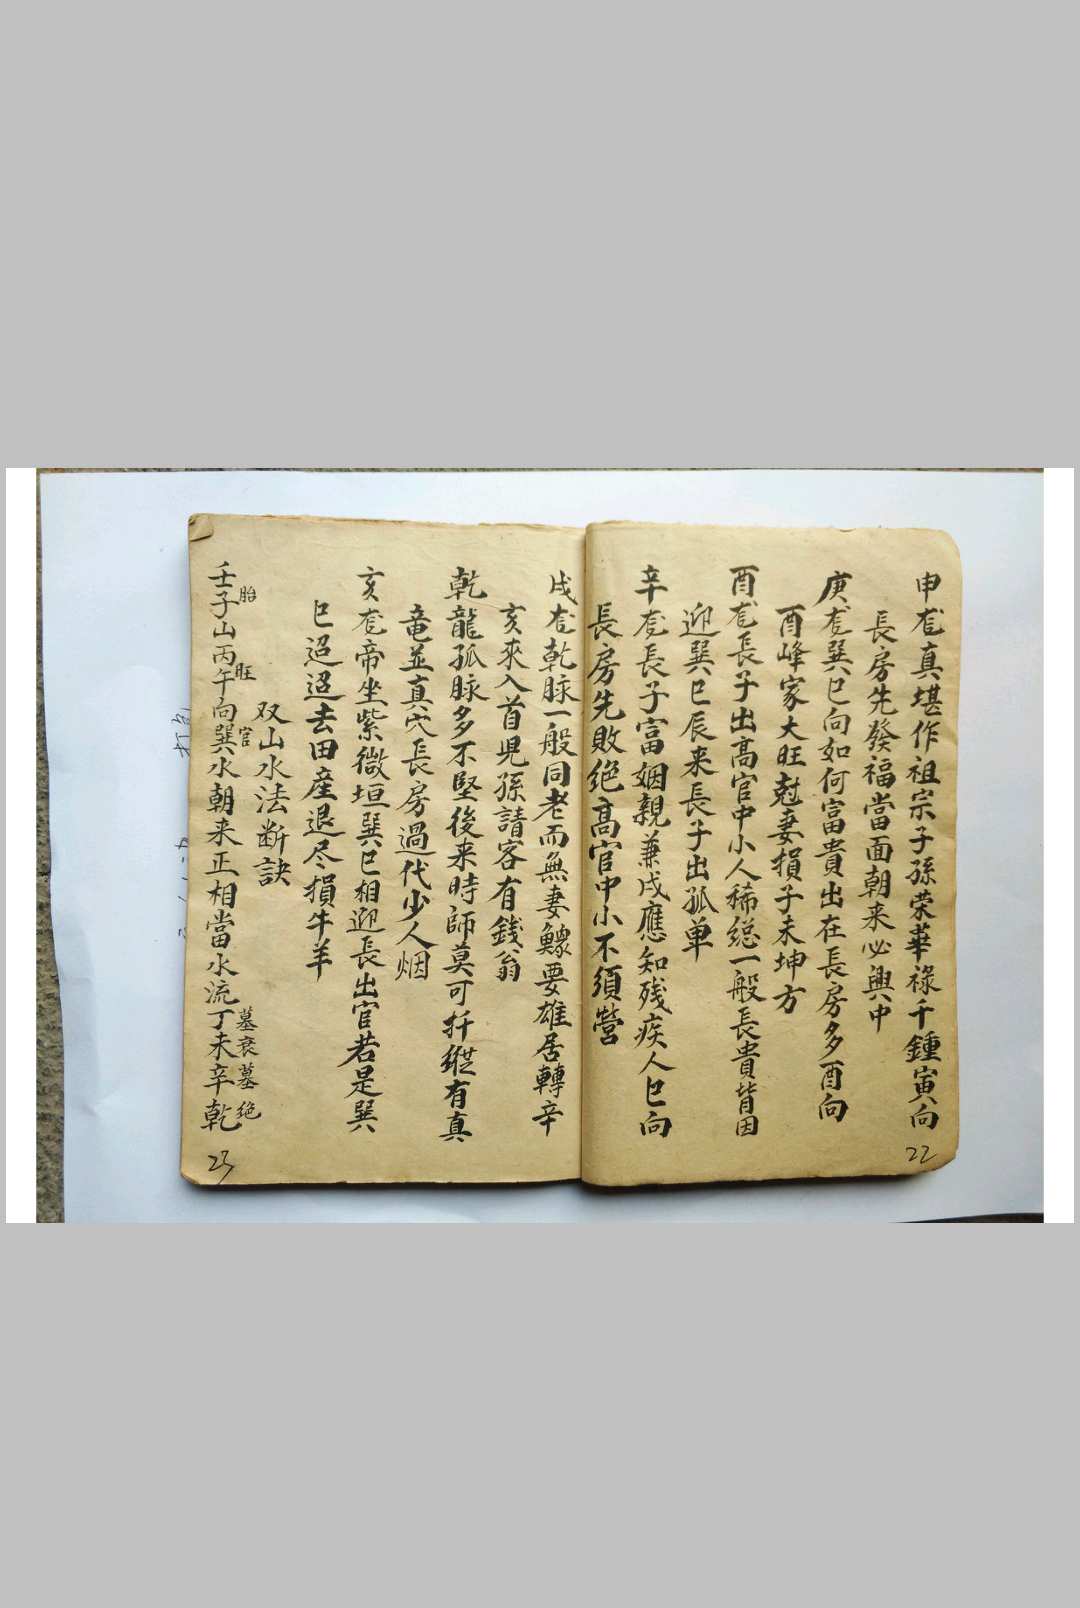 申龙真堪作祖宗子孫荣華祿千鍾寅向
長房先發福當面朝来必興中
庚龙巽巳向如何富貴出在長房多酉向
酉峰家大旺尅妻損子未坤方
酉龙長子出髙官中小人稀総一般長貴皆因
迎巽巳辰来長子出孤单
辛龙長子富姻親兼戌應知残疾人巳向
長房先敗绝髙官中小不須營
戌龙乾脉一般同老而無妻鰥要雄居轉辛
亥來入首児孫請客有錢翁
乾龍孤脉多不堅後来時師莫可扦縱有真
竜並真穴長房過代少人烟
亥龙帝坐紫微垣巽巳相迎長出官若是巽
巳迢迢去田産退尽損牛羊
双山水法断訣
壬子山丙午向巽水朝来正相當水流丁未辛乾
胎 旺 官 墓衰墓绝
22
23